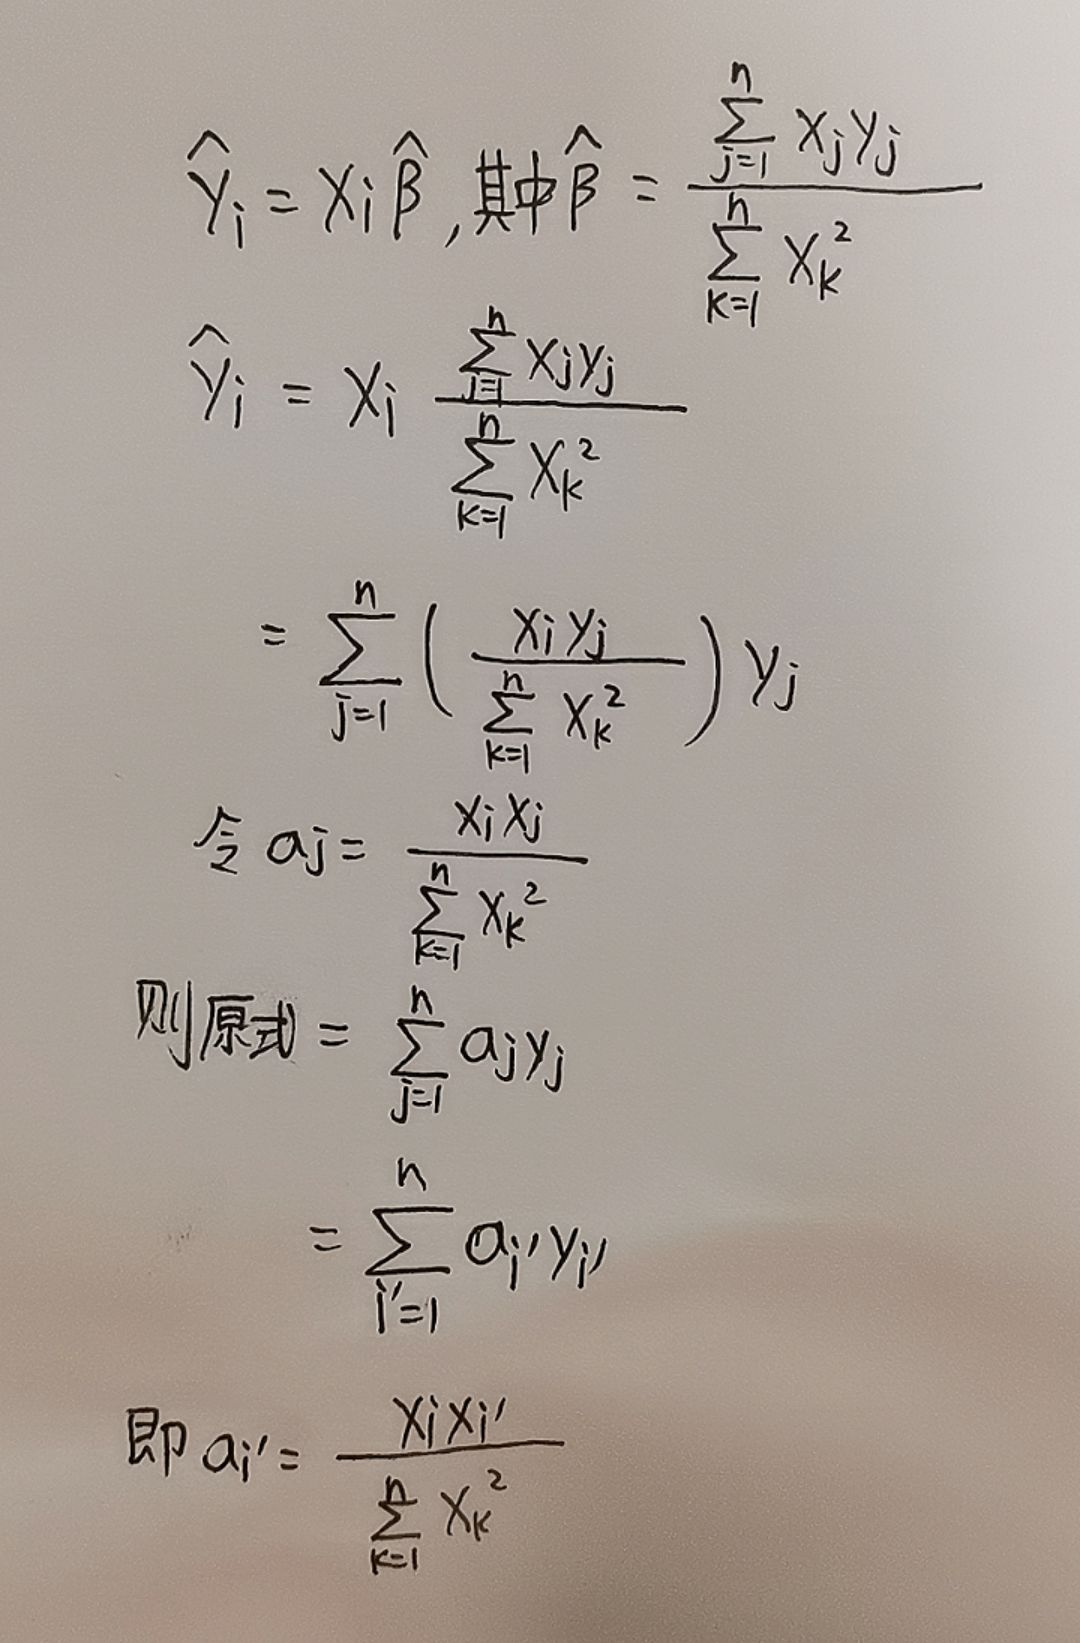 Ŷᵢ = Xᵢ β̂ , 其中 β̂ = \frac{\sum_{j=1}^{n} x_j y_j}{\sum_{k=1}^{n} x_k^2}
ŷᵢ = xᵢ \frac{\sum_{j=1}^{n} x_j y_j}{\sum_{k=1}^{n} x_k^2}
= \sum_{j=1}^{n} ( \frac{x_i y_j}{\sum_{k=1}^{n} x_k^2} ) y_j
令 a_j = \frac{x_i x_j}{\sum_{k=1}^{n} x_k^2}
则原式 = \sum_{j=1}^{n} a_j y_j
= \sum_{i'=1}^{n} a_{i'} y_{i'}
即 a_{i'} = \frac{x_i x_{i'}}{\sum_{k=1}^{n} x_k^2}